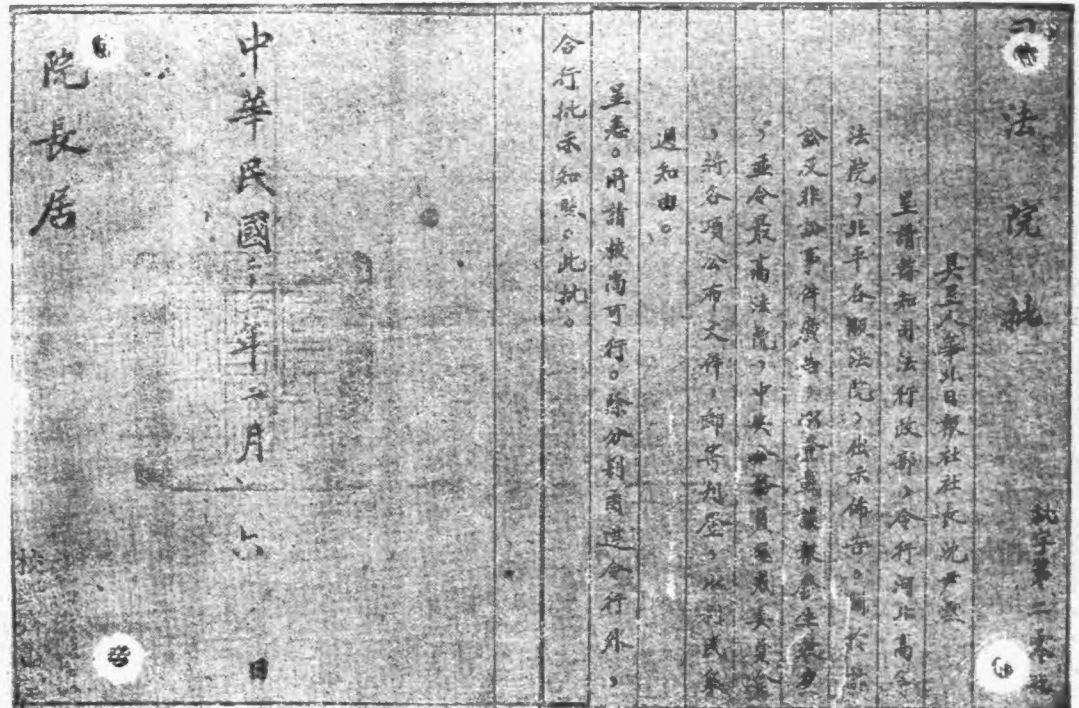 司法院批
批字第二零 號
具呈人華北日報社社長沈尹默
呈請轉知司法行政部，令行河北高等
法院，北平各級法院，出示佈告。關於訴
訟及非訟事件廣告，須登華北報 生效力
，並令最高法院，中央公務員懲戒委員會
，將各項公布文件，郵寄刊登，以利民眾
週知由。
呈悉。所請核尚可行。除分別函達令行外，
合行批示知照。此批。
中華民國二十 年 月 六 日
院長居
校